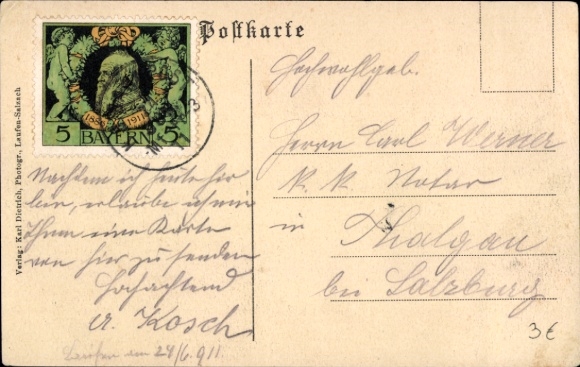 Postkarte
1886 1911
5 BAYERN 5
Verlag: Karl Dietrich, Photogr., Laufen-Salzach
Hochwohlgeb.
Herrn Carl Werner
k. k. Notar
in Thalgau
bei Salzburg
Nachdem ich heute hier
bin, erlaube ich mir
Ihnen eine Karte
von hier zu senden
Hochachtend
A. Kosch
Laufen am 24/6. 911.
3€